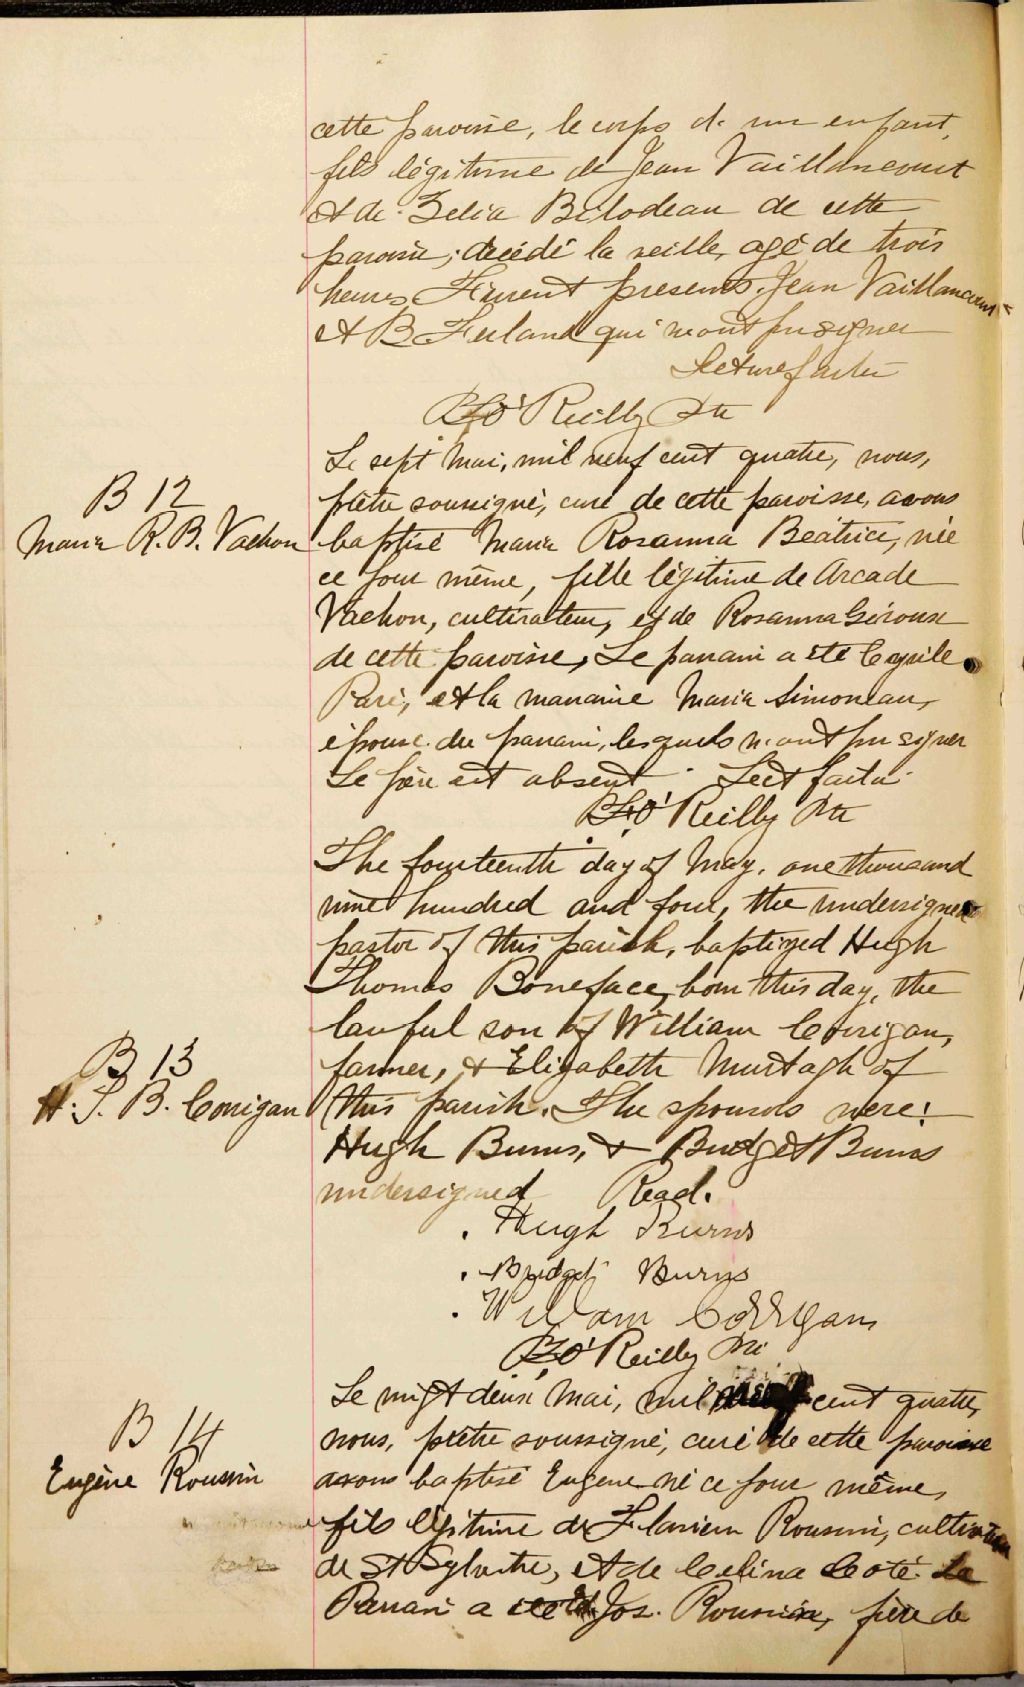 cette paroisse, le corps de un enfant,
fils légitime de Jean Vaillancourt
et de Zelia Bilodeau de cette
paroisse, décédé la veille, agé de trois
heures Furent presents Jean Vaillancourt
et B Ferland qui n'ont pu signer
Lecture faite
O'Reilly Ptr
Le sept Mai, mil neuf cent quatre, nous,
B 12
prêtre soussigné, curé de cette paroisse, avons
Maria R. B. Vachon
baptisé Maria Rosanna Béatrice, née
ce jour même, fille légitime de Arcade
Vachon, cultivateur, et de Rosanna Giroux
de cette paroisse, Le parrain a été Cyrile
Paré, et la marraine Maria Simoneau,
épouse du parrain, lesquels n'ont pu signer
Le père est absent. Lect faite.
O'Reilly Ptr
The fourteenth day of May, one thousand
nine hundred and four, the undersigned
pastor of this parish, baptized Hugh
Thomas Boneface, born this day, the
lawful son of William Corrigan,
B 13
farmer, & Elizabeth Murtagh of
H. T. B. Corrigan
this parish. The sponsors were:
Hugh Burns, & Bridget Burns
undersigned Read.
Hugh Burns
Bridget Burns
William Corrigan
O'Reilly Ptr
Le vingt deux Mai, mil cent quatre,
B 14
nous, prêtre soussigné, curé de cette paroisse
Eugène Roussin
avons baptisé Eugene né ce jour même,
fils légitime de Flavien Roussin, cultivateur
de St Sylvestre, et de Celina Coté. Le
Parrain a été Jos. Roussin, frère de